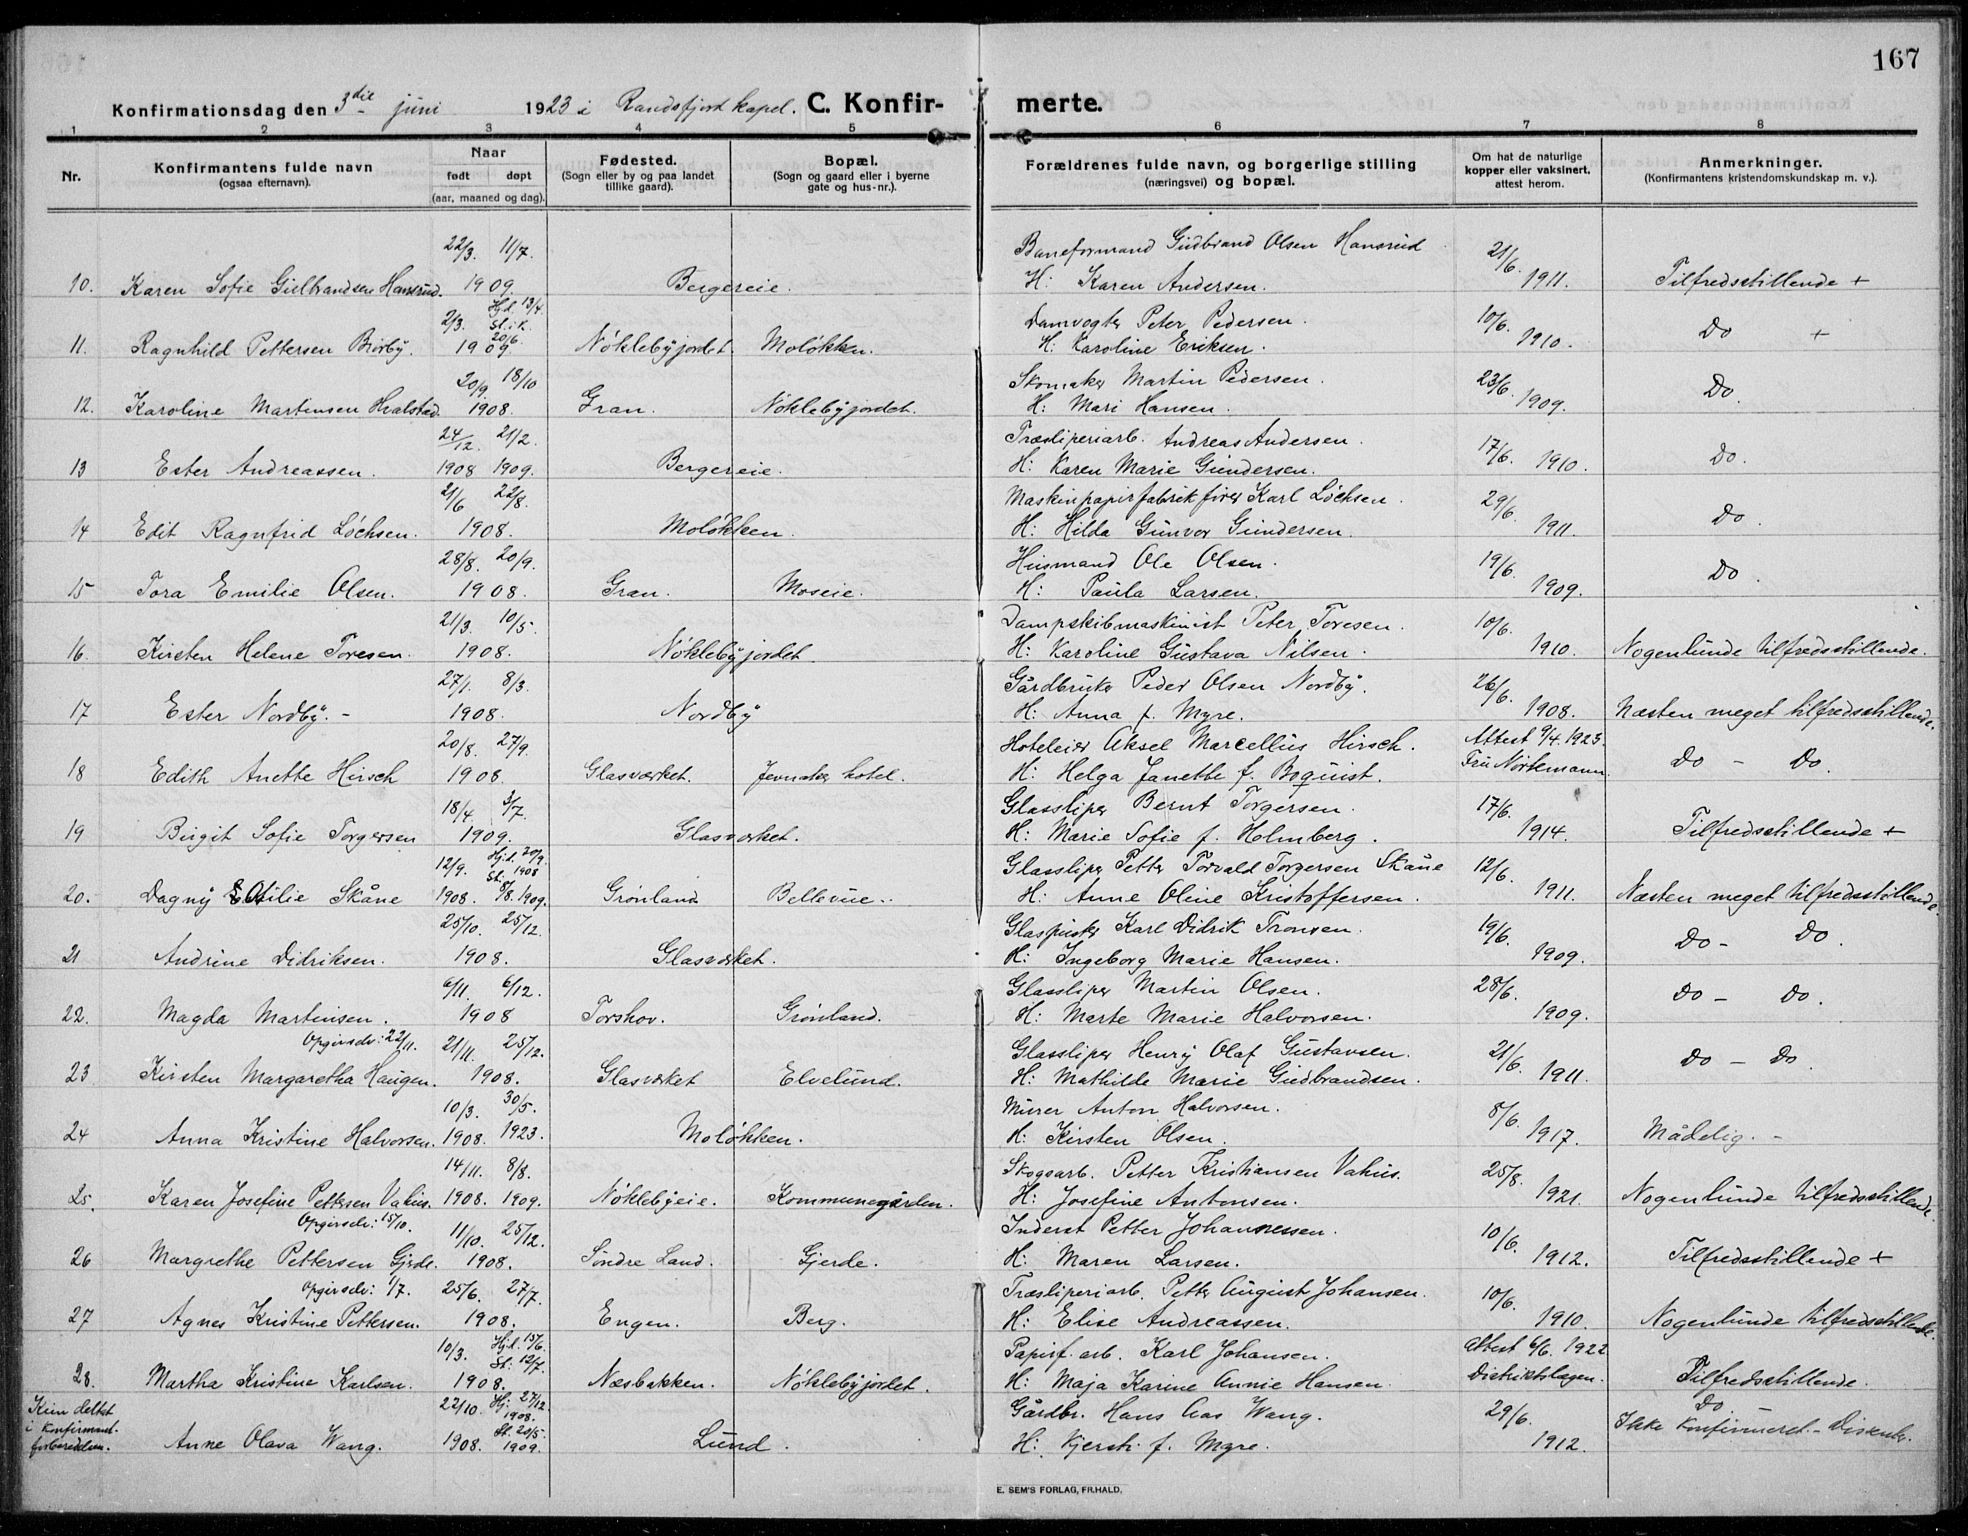 167
Konfirmationsdag den 3die juni 1923 i Randsfjord kapel. C. Konfir- merte.
1 2 3 4 5 6 7 8
Nr. Konfirmantens fulde navn (ogsaa efternavn). Naar født døpt (aar, maaned og dag). Fødested. (Sogn eller by og paa landet tillike gaard). Bopæl. (Sogn og gaard eller i byerne gate og hus-nr.). Forældrenes fulde navn, og borgerlige stilling (næringsvei) og bopæl. Om hat de naturlige kopper eller vaksinert, attest herom. Anmerkninger. (Konfirmantens kristendomskundskap m. v.).
22/3. 11/7. Baneformand Gudbrand Olsen Hansrud 21/6.
10. Karen Sofie Gulbrandsen Hansrud. 1909. Bergereie. H: Karen Andersen. 1911. Tilfredsstillende +
2/3. Hjd. 13/4. St. i k. 20/6. Damvogter Peter Pedersen. 10/6.
11. Ragnhild Pettersen Biørby. 1909 Nøklebyjordet. Moløkken. H: Karoline Eriksen. 1910. Do +
20/9. 18/10 Skomaker Martin Pedersen. 23/6
12. Karoline Martinsen Hvalstad 1908. Gran. Nøklebyjordet. H: Mari Hansen. 1909. Do.
24/12. 21/2. Træsliperiarb. Andreas Andersen. 17/6.
13 Ester Andreassen. 1908 1909. Bergereie. H: Karen Marie Gundersen. 1910. Do.
21/6 22/8. Maskinpapirfabrikfører Karl Løchsen. 29/6.
14 Edit Ragnfrid Løchsen. 1908. Moløkken. H: Hilda Gunvor Gundersen. 1911. Do.
28/8. 20/9. Husmand Ole Olsen. 19/6.
15 Tora Emilie Olsen. 1908. Gran. Moseie. H: Paula Larsen. 1909. Do.
21/3. 10/5. Dampskibmaskinist Peter Toresen. 10/6.
16. Kirsten Helene Toresen. 1908. Nøklebyjordet H: Karoline Gustava Nilsen. 1910. Nogenlunde tilfredsstillende.
27/1. 8/3. Gårdbruker Peder Olsen Nordby. 26/6.
17 Ester Nordby. - 1908. Nordby H: Anna f. Myre. 1908. Næsten meget tilfredsstillende.
20/8. 27/9. Hoteleier Aksel Marcellius Hirsch. Attest 9/4. 1923.
18 Edith Anette Hirsch 1908. Glasværket. Jevnaker hotel. H: Helga Janette f. Boquist. Fru Nørtemann. Do - Do.
18/4. 3/7. Glassliper Bernt Torgersen. 17/6.
19 Birgit Sofie Torgersen 1909. Glasværket. H: Marie Sofie f. Holmberg. 1914. Tilfredsstillende +
12/9. Hjd. 20/9. 1908 St. Glassliper Petter Torvald Torgersen Skåne 12/6.
20. Dagny Otilie Skåne 1908. 8/8. 1909. Grønland Bellevue. H: Anne Oline Kristoffersen. 1911. Næsten meget tilfredsstillende.
25/10. 25/12. Glaspuster Karl Didrik Tronsen. 19/6.
21 Andrine Didriksen. 1908. Glasværket. H: Ingeborg Marie Hansen. 1909. Do - Do.
6/11. 6/12. Glassliper Martin Olsen. 28/6.
22. Magda Martinsen. 1908 Torshov. Grønland. H: Marte Marie Halvorsen. 1909. Do - Do.
Opgir selv: 22/11. 21/11. 25/12. Glassliper Henry Olaf Gustavsen. 21/6.
23 Kirsten Margaretha Haugen. 1908. Glasværket Elvelund. H: Mathilde Marie Gudbrandsen. 1911. Do - Do.
10/3. 30/5. Murer Anton Halvorsen. 8/6.
24 Anna Kristine Halvorsen. 1908. 1923. Moløkken. H: Kirsten Olsen. 1917. Mådelig. -
14/11. 8/8. Skogsarb. Petter Kristiansen Vahus. 25/8.
25. Karen Josefine Pettersen Vahus. 1908. 1909. Nøklebyeie. Kommunegården. H: Josefine Antonsen. 1921. Nogenlunde tilfredsstillende.
Opgir selv: 15/10. 11/10. 25/12. Inderst Petter Johannessen. 10/6.
26 Margrethe Pettersen Gjerde. 1908. Søndre Land. Gjerde. H: Maren Larsen. 1912. Tilfredsstillende +
Opgir selv: 1/7. 25/6. 27/7. Træsliperiarb. Petter August Johansen. 10/6.
27 Agnes Kristine Pettersen. 1908. Engen. Berg. H: Elise Andreassen. 1910. Nogenlunde tilfredsstillende.
10/3. Hjd. 15/6. St: 12/7. Papirf. arb. Karl Johansen. Attest 6/6. 1922
28. Martha Kristine Karlsen. 1908. Næsbakken. Nøklebyjordet. H: Maja Karine Annie Hansen. Distriktslægen. Tilfredsstillende.
Kun deltat i konfirmantforberedelsen. 22/10. Hj: 27/12. 1908. Gårdbr. Hans Aas Wang. 29/6. Do
Anne Olava Wang. 1908. St. 20/5. 1909. Lund. H: Kjersti f. Myre. 1912. Ikke konfirmeret. - Dissenter.
E. SEM'S FORLAG, FR.HALD.